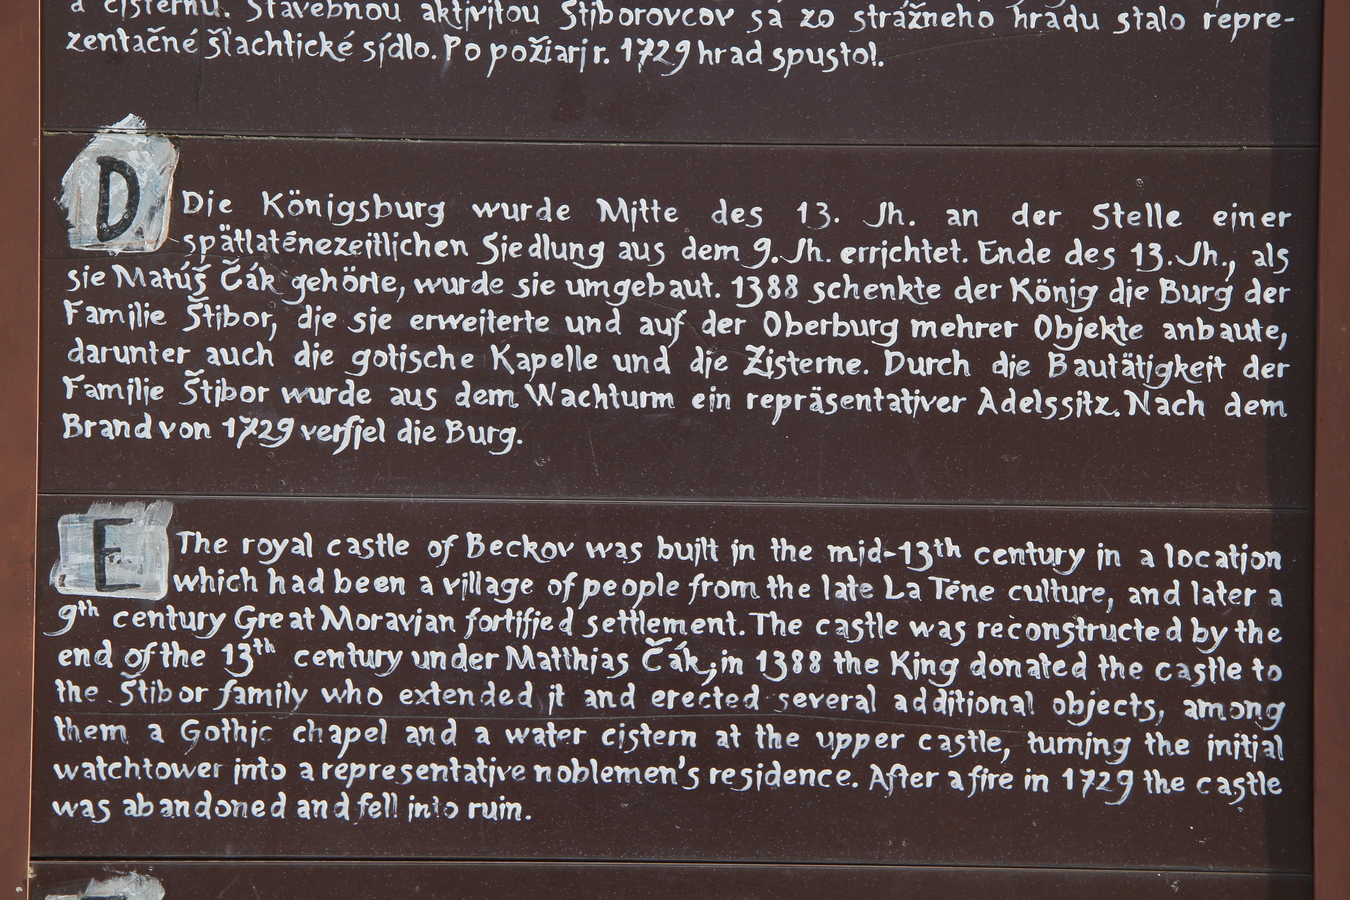 a cisternu. Stavebnou aktivitou Stiborovcov sa zo strážneho hradu stalo repre-
zentačné šľachtické sídlo. Po požiari r. 1729 hrad spustol.
D
Die Königsburg wurde Mitte des 13. Jh. an der Stelle einer
spätlaténezeitlichen Siedlung aus dem 9. Jh. errichtet. Ende des 13. Jh., als
sie Matúš Čák gehörte, wurde sie umgebaut. 1388 schenkte der König die Burg der
Familie Štibor, die sie erweiterte und auf der Oberburg mehrer Objekte anbaute,
darunter auch die gotische Kapelle und die Zisterne. Durch die Bautätigkeit der
Familie Štibor wurde aus dem Wachturm ein repräsentativer Adelssitz. Nach dem
Brand von 1729 verfiel die Burg.
E
The royal castle of Beckov was built in the mid-13th century in a location
which had been a village of people from the late La Téne culture, and later a
9th century Great Moravian fortified settlement. The castle was reconstructed by the
end of the 13th century under Matthias Čák, in 1388 the King donated the castle to
the Štibor family who extended it and erected several additional objects, among
them a Gothic chapel and a water cistern at the upper castle, turning the initial
watchtower into a representative noblemen's residence. After a fire in 1729 the castle
was abandoned and fell into ruin.